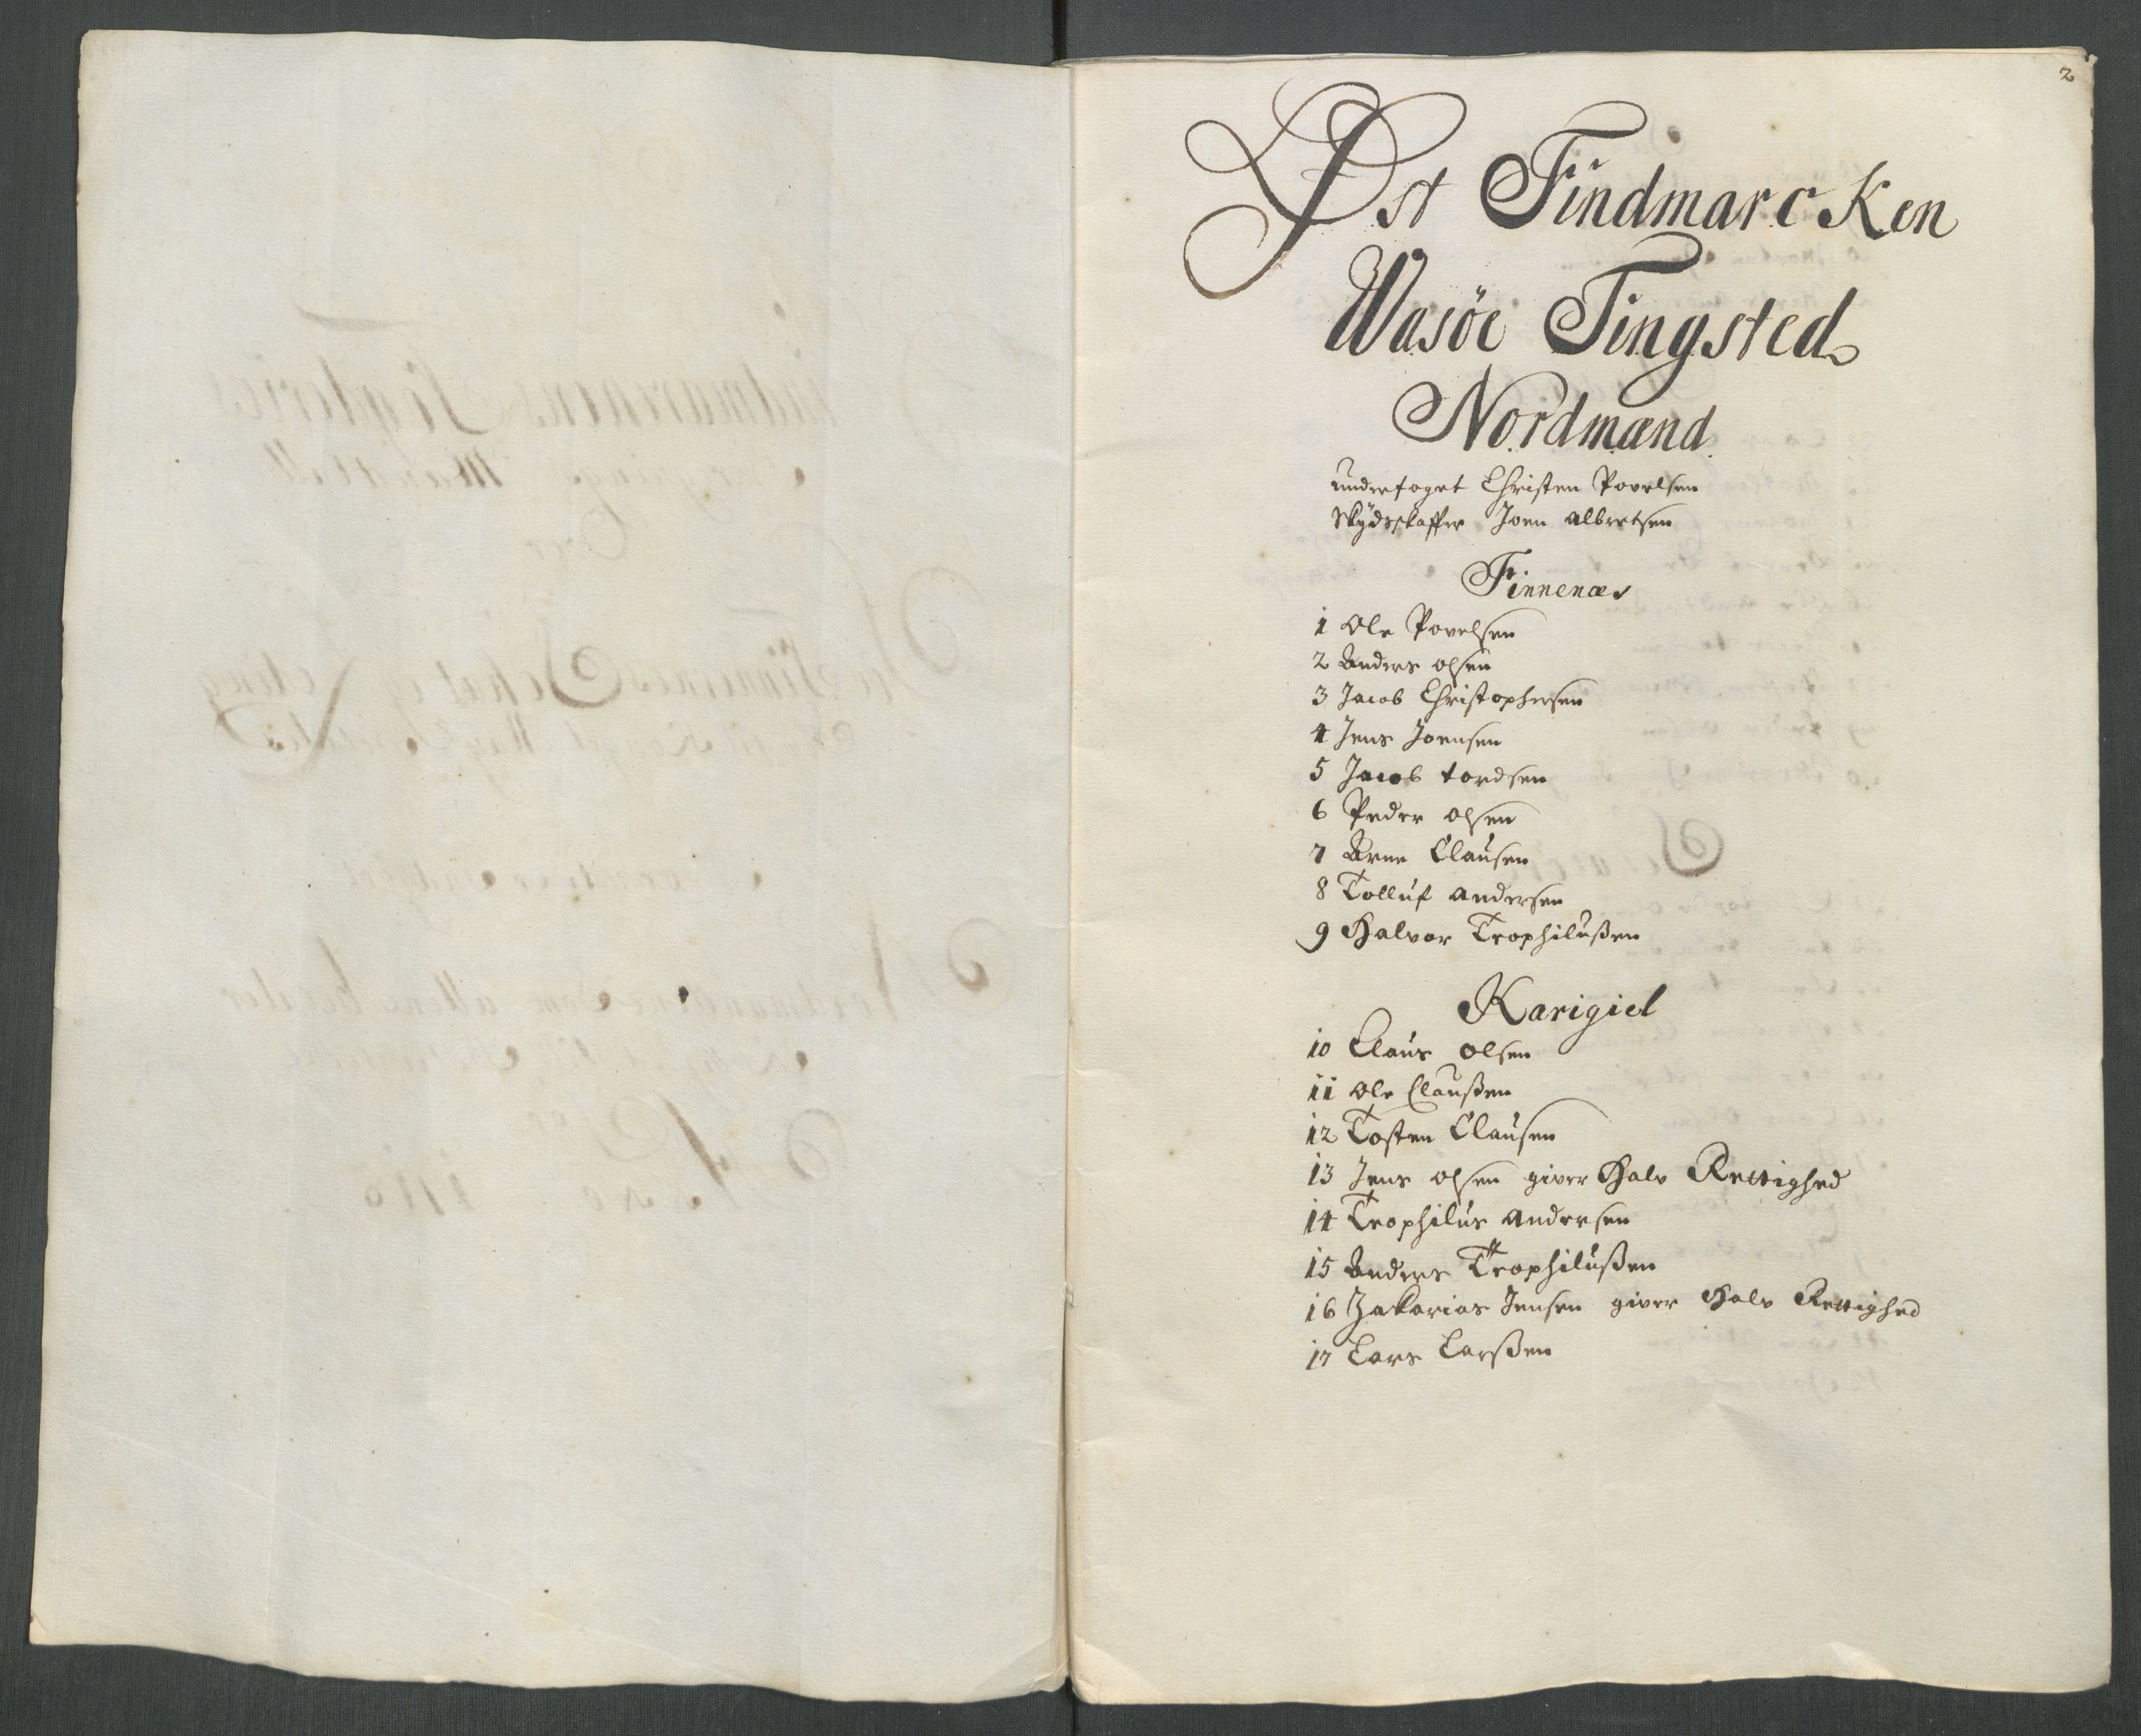 2
Øst Findmarcken
Wasöe Tingsted
Nordmænd
underfoget Christen Povelsen
Skydsskaffer Joen Albretsen
Finnenæs
1 Ole Povelsen
2 Anders Olsen
3 Jacob Christophersen
4 Jens Joensen
5 Jacob tordsen
6 Peder Olsen
7 Arne Clausen
8 Tolluf Andersen
9 Halvor Trophilußen
Karigiel
10 Claus Olsen
11 Ole Claußen
12 Tosten Clausen
13 Jens Olsen giver Halv Rettighed
14 Trophilus Andersen
15 Anders Trophilußen
16 Zakarias Jensen giver Halv Rettighed
17 Lars Larßen